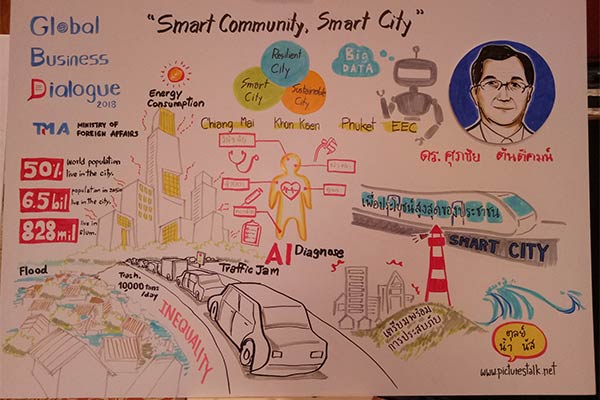 Global
Business
Dialogue
2018
TMA
MINISTRY OF
FOREIGN AFFAIRS
"Smart Community, Smart City"
Resilient
City
Smart
City
Sustainable
City
Big
DATA
Energy
Consumption
Chiang Mai
Khon Kaen
Phuket
EEC
50%
World population
live in the city.
6.5 bil
population in
live in the city.
828 mil
live in
slum.
AI Diagnose
เพื่อประโยชน์สูงสุดของประชาชน
SMART CITY
Flood
Trash
10000 tons
/day
Traffic Jam
INEQUALITY
เตรียมพร้อม
การประสบภัย
ตุลย์
น้ำ นัส
www.picturestalk.net